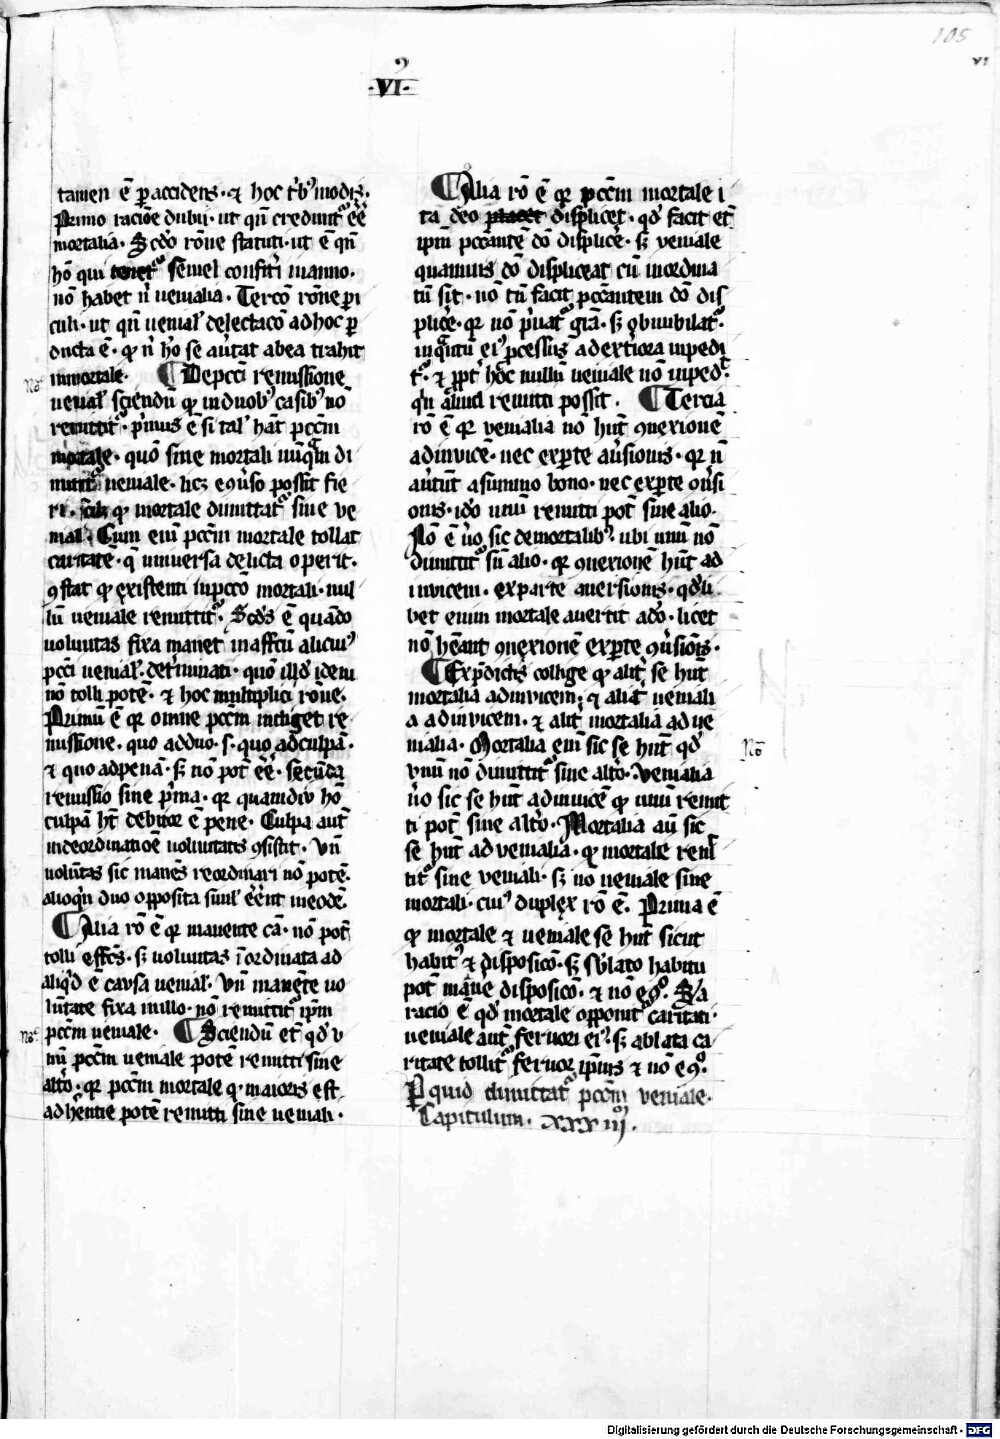 105
VI
9
·VI·
tamen ē ꝑ accidens · ⁊ hoc t͛bꝰ modis ·
Primo racōe dubii · ut qn̄ credunt᷑ eē
mortalia · Scdo rōne statuti · ut ē qn̄
hō qui tenet᷑ semel confit͛i in anno ·
nō habet n͛ uenialia · Tercō rōne ꝑi
culi · ut qn̄ uenial̕ delectacō ad hoc ꝑ
ducta ē · ꝙ n͛ hō se au͛tat ab ea trahit
in mortale · ¶ De pcci remissione
No͛
uenial̕ sciendū ꝙ in duobꝰ casibꝰ nō
remittit᷑ · p͛mus ē si tal̕ hāt pccm̄
mortale · quō sine mortali nūqᷓm di
mittit᷑ ueniale · licꝫ eꝯuso possit fie
ri · scil̕ ꝙ mortale dimittat᷑ sine ve
niali · Cum eni͛ pccm̄ mortale tollat
caritatē · q̄ universa delicta operit ·
ꝯstat ꝙ existenti in pccō mortali · nul
lū ueniale remittit᷑ · Scds̄ ē quādo
uoluntas fixa manet in affcū alicuiꝰ
pcci uenial̕ · det͛minati · quō illd̕ idem
nō tolli potē · ⁊ hoc multiplici rōne ·
Primū ē qr omne pccm̄ indiget re
missione · quo ad duo · s · quo ad culpā ·
⁊ quo ad penā · sꝫ nō pot̄ eē · secūda
remissio sine p͛ma · qr quamdiv hō
culpā ht̄ debitor ē pene · Culpa aut̄
in deordinationē uoluntatis ꝯsistit · Vn̄
uolūtas sic manēs reordinari nō potē ·
alioqn͛ duo opposita siml̕ eēnt in eodē ·
¶ Alia rō ē qr manente cā · nō pot̄
tolli effcs̄ · sꝫ uoluntas īordinata ad
aliqd̕ ē causa uenial̕ · Vn̄ manēte uo
lūtate fixa in illo · nō remittit᷑ ipm̄
pccm̄ ueniale · ¶ Sciendū et̄ qd̕ v
No͛
nū pccm̄ ueniale potē remitti sine
alt͛o · qr pccm̄ mortale qꝰ maioris est
adhentie potē remitti sine ueniali ·
¶ Alia rō ē qr pccm̄ mortale i
ta deo displicet · qd̕ facit et̄
ipm̄ pccantē dō displicē · sꝫ veniale
quamuis dō displiceat cū inordina
tū sit · nō tn̄ facit pccantem dō dis
plicē · qr nō p͛uat᷑ grā · sꝫ obnubilat᷑ ·
inqᷓntū eiꝰ ꝓcessus ad ext͛iora inpedi
t᷑ · ⁊ ꝓpt͛ hoc nullū ueniale nō inped᷑ ·
qn͛ aliud remitti possit · ¶ Tercia
rō ē qr venialia nō hn̄t ꝯnexionē
ad invicē · nec ex ꝑte au͛sionis · qr n̄
au͛tūt a summo bono · nec ex ꝑte ꝯu͛si
onis · idō unū remitti pot̄ sine alio ·
Nō ē u͛o sic de mortalibꝰ · ubi unū nō
dimittit᷑ sn̄ alio · qr ꝯnexionē hn̄t ad
invicem · ex parte auersionis · qd̕li
bet enim mortale avertit a dō · licet
nō hēant ꝯnexionē ex ꝑte ꝯu͛sionis ·
¶ Ex p̄dictis collige ꝙ alit͛ se hn̄t
mortalia ad invicem · ⁊ alit͛ veniali
a ad invicem · ⁊ alit͛ mortalia ad ve
nialia · Mortalia eni͛ sic se hn̄t qd̕
No͞
vnū nō dimittit᷑ sine alt͛o · Venialia
u͛o sic se hn̄t ad invicē ꝙ unū remit
ti pot̄ sine alt͛o · Mortalia au͛ sic
se hn̄t ad venialia · ꝙ mortale remit
tit᷑ sine veniali · sꝫ nō ueniale sine
mortali · cuiꝰ duplex rō ē · Prima ē
ꝙ mortale ⁊ ueniale se hn̄t sicut
habitꝰ ⁊ disposicō · sꝫ sblato habitu
pot̄ manē disposicō · ⁊ nō eqᵒ · Scda
racio ē qd̕ mortale opponit᷑ caritati ·
ueniale aut̄ feruori eiꝰ · sꝫ ablata ca
ritate tollit᷑ feruor ipīus ⁊ nō eqᵒ ·
P quid dimittat᷑ pccm̄ veniale ·
Capitulum · xxxiiijᵐ ·
Digitalisierung gefördert durch die Deutsche Forschungsgemeinschaft - DFG